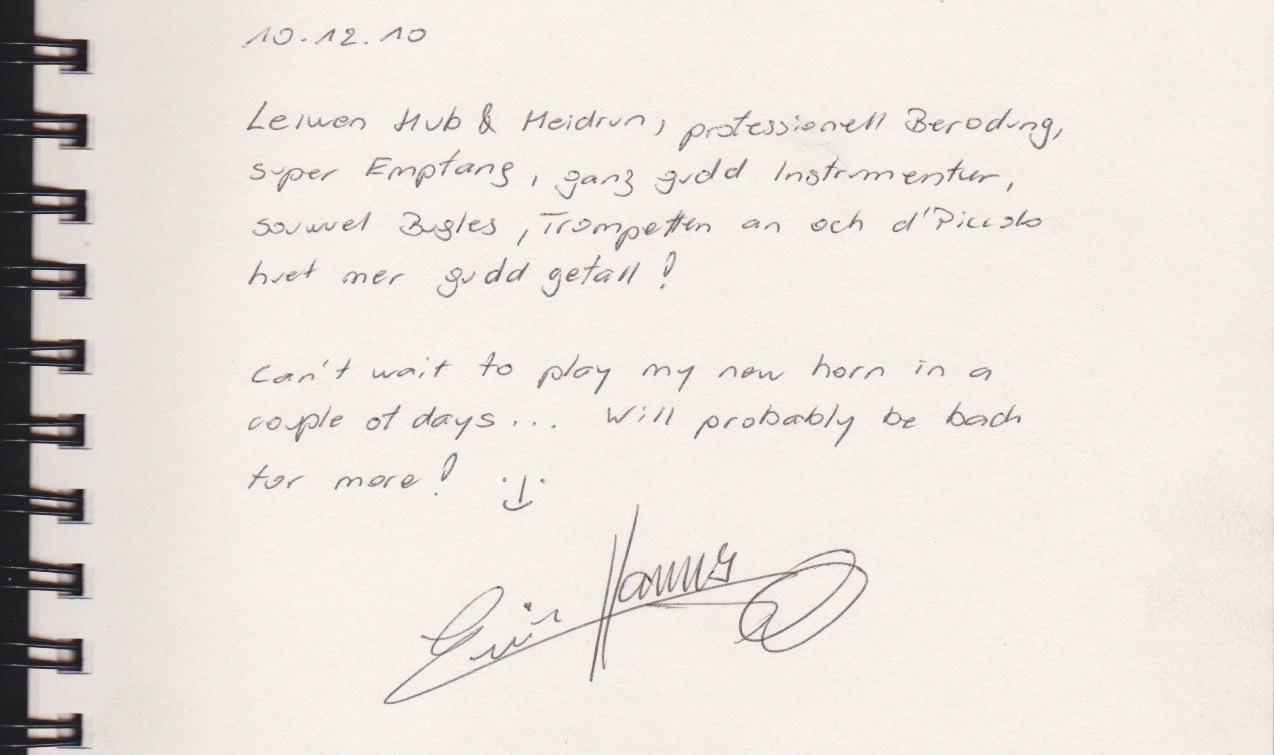 10.12.10
Leiwen Hub & Heidrun, professionell Berodung,
super Empfang, ganz gudd Instrumenter,
souwuel Bugles, Trompetten an och d'Piccolo
huet mer gudd gefall!
Can't wait to play my new horn in a
couple of days... Will probably be back
for more!